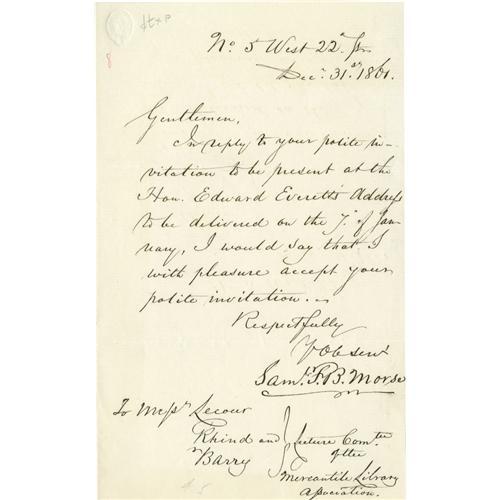 No 5 West 22d St.
Decr. 31st 1861.
Gentlemen,
In reply to your polite in-
vitation to be present at the
Hon. Edward Everett's Address
to be delivered on the 7th of Jan-
uary, I would say that I
with pleasure accept your
polite invitation.
Respectfully
Yr Ob servt
Saml. F. B. Morse
To Messrs Lecour
Rhind and
Barry
Lecture Comtee
of the
Mercantile Library
Association.